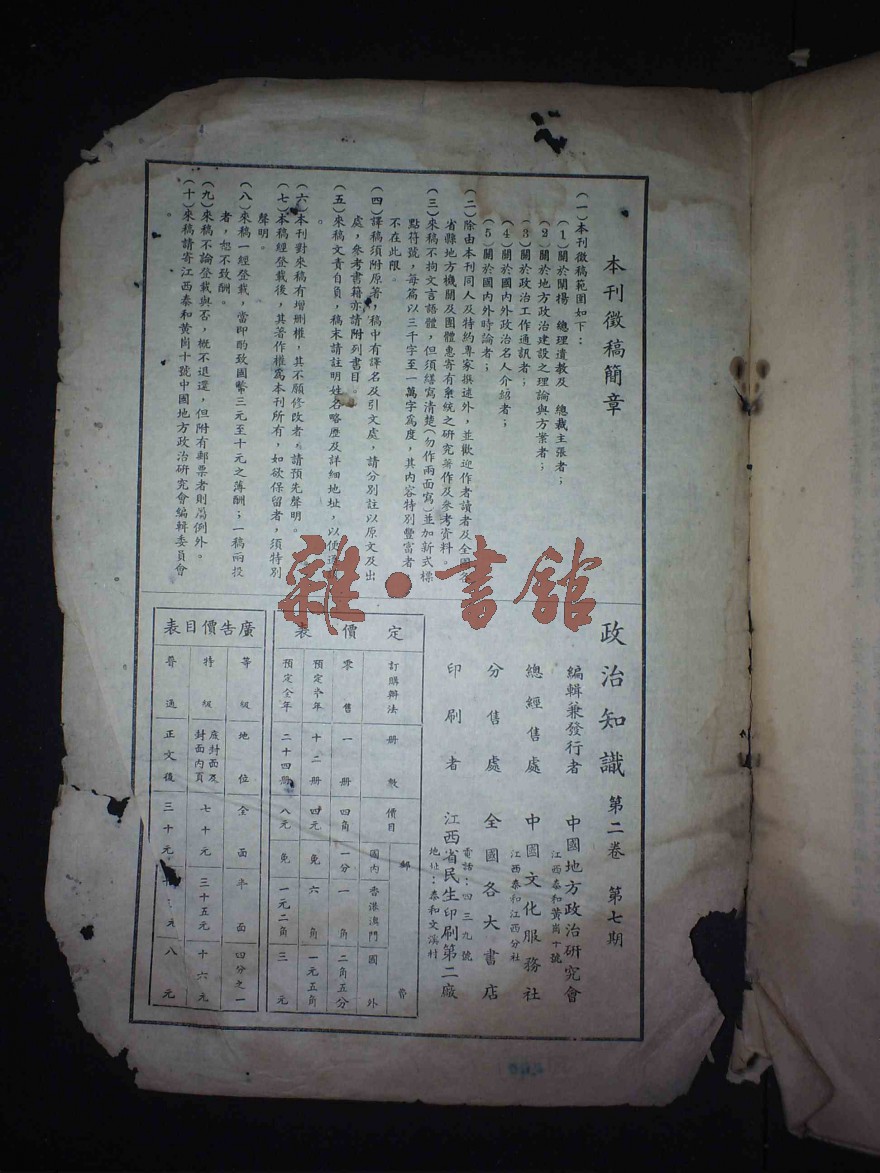 本刊徵稿簡章
(一)本刊徵稿範圍如下：
(1)關於闡揚 總理遺教及 總裁主張者；
(2)關於地方政治建設之理論與方案者；
(3)關於政治工作通訊者；
(4)關於國內外政治名人介紹者；
(5)關於國內外時論者；
(二)除由本刊同人及特約專家撰述外，並歡迎作者讀者及全國各
省縣地方機關及團體惠寄有系統之研究著作及參考資料。
(三)來稿不拘文言語體，但須繕寫清楚(勿作兩面寫)並加新式標
點符號，每篇以三千字至一萬字爲度，其內容特別豐富者
不在此限。
(四)譯稿須附原著，稿中有譯名及引文處，請分別註以原文及出
處，參考書籍亦請附列書目。
(五)來稿文責自負，稿末請註明姓名略歷及詳細地址，以便通
。
(六)本刊對來稿有增刪權，其不願修改者，請預先聲明。
(七)本稿經登載後，其著作權爲本刊所有，如欲保留者，須特別
聲明。
(八)來稿一經登載，當即酌致國幣三元至十元之薄酬；一稿兩投
者，恕不致酬。
(九)來稿不論登載與否，概不退還，但附有郵票者則屬例外。
(十)來稿請寄江西泰和黃崗十號中國地方政治研究會編輯委員會
。
政治知識 第二卷 第七期
編輯兼發行者 中國地方政治研究會
江西泰和黃崗十號
總經售處 中國文化服務社
江西泰和江西分社
分售處 全國各大書店
印刷者 江西省民生印刷第二廠
電話：四三九號
地址：泰和文溪村
定價表
訂購辦法 冊數 價目 郵費
國內 香港澳門 國外
零售 一冊 四角 一分 一角 二角五分
預定半年 十二冊 四元 免 六角 一元五角
預定全年 二十四冊 八元 免 一元二角 三元
廣告價目表
等級 地位 全面 半面 四分之一
特級 底封面及封面內頁 七十元 三十五元 十六元
普通 正文後 三十元 元 八元
雜·書館